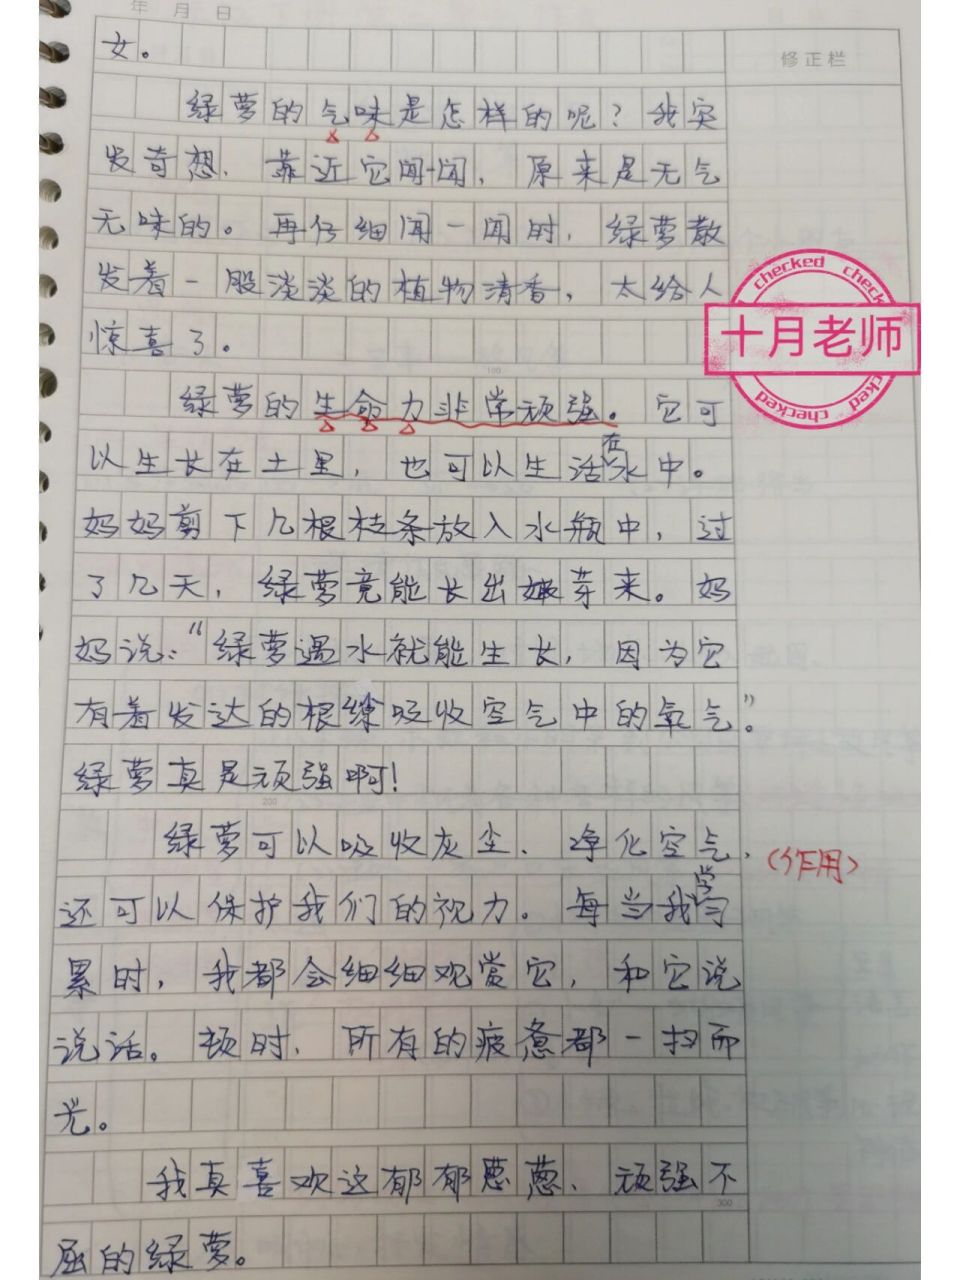 年 月 日
修正栏
女。
绿萝的气味是怎样的呢？我突
发奇想，靠近它闻一闻，原来是无气
无味的。再仔细闻一闻时，绿萝散
发着一股淡淡的植物清香，太给人
惊喜了。
100
checked checked
十月老师
checked checked
绿萝的生命力非常顽强。它可
以生长在土里，也可以生活在水中。
妈妈剪下几根枝条放入水瓶中，过
了几天，绿萝竟能长出嫩芽来。妈
妈说：“绿萝遇水就能生长，因为它
有着发达的根缘吸收空气中的氧气。”
绿萝真是顽强啊！
200
绿萝可以吸收灰尘、净化空气，
（作用）
还可以保护我们的视力。每当我学习
累时，我都会细细观赏它，和它说
说话。顿时，所有的疲惫都一扫而
光。
我真喜欢这郁郁葱葱、顽强不
300
屈的绿萝。